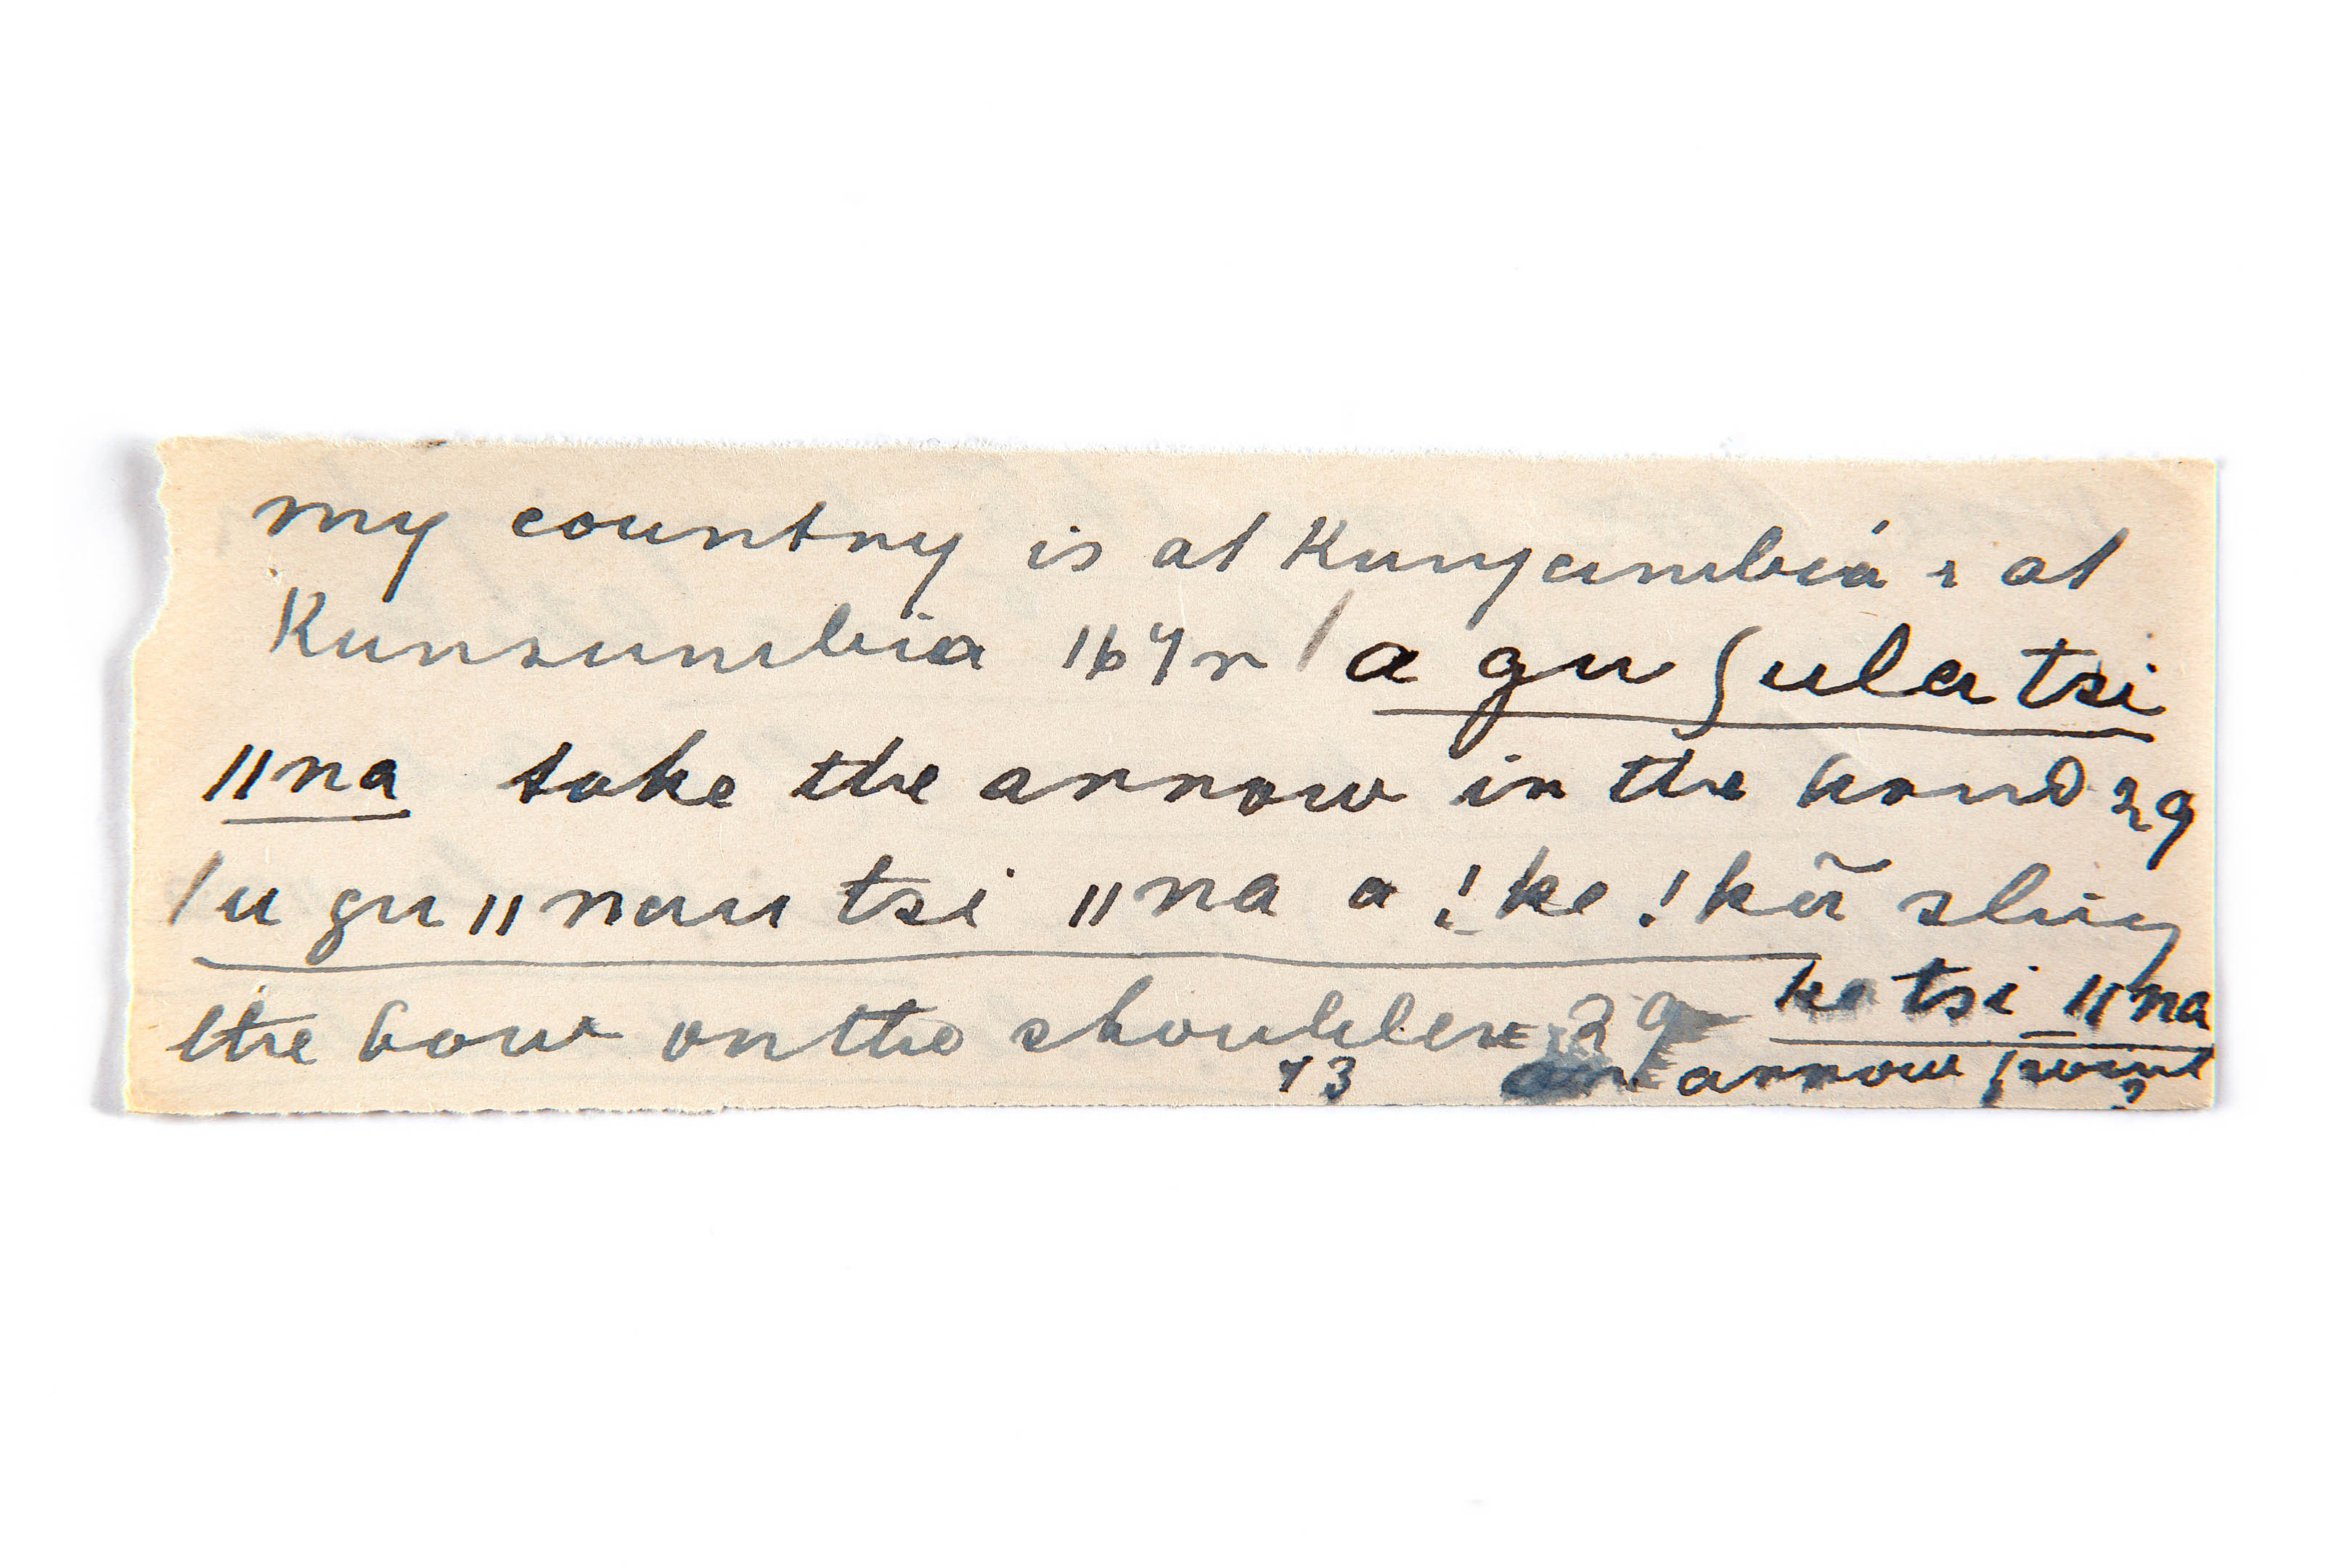 my country is at Kunyambiá & at
Kunsumbia 167r / a gu ʃula tsi
ǁna take the arrow in the hand 29
/u gu ǁnau tsi ǁna a !ke !kã sling
the bow on the shoulder 29 ka tsi ǁna
73 an arrow point